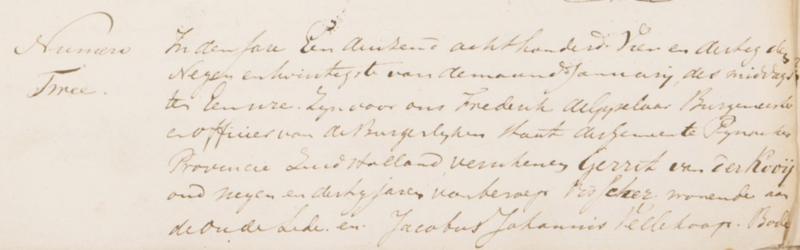 Numero
Twee.
In den Jare Een duizend achthonderd Vier en dertig den
Negen en twintigste van de maand January, des middags
ten Een ure. Zyn voor ons Frederik Burgemeester
en officier van de Burgerlyken Stant der Gemeente Pynacker
Provincie Zuid Holland, verschenen Gerrit van der Kooij
oud negen en dertig jaren van beroep Visscher wonende aan
de oude Lede. en Jacobus Johannis Vellekoop. Bode